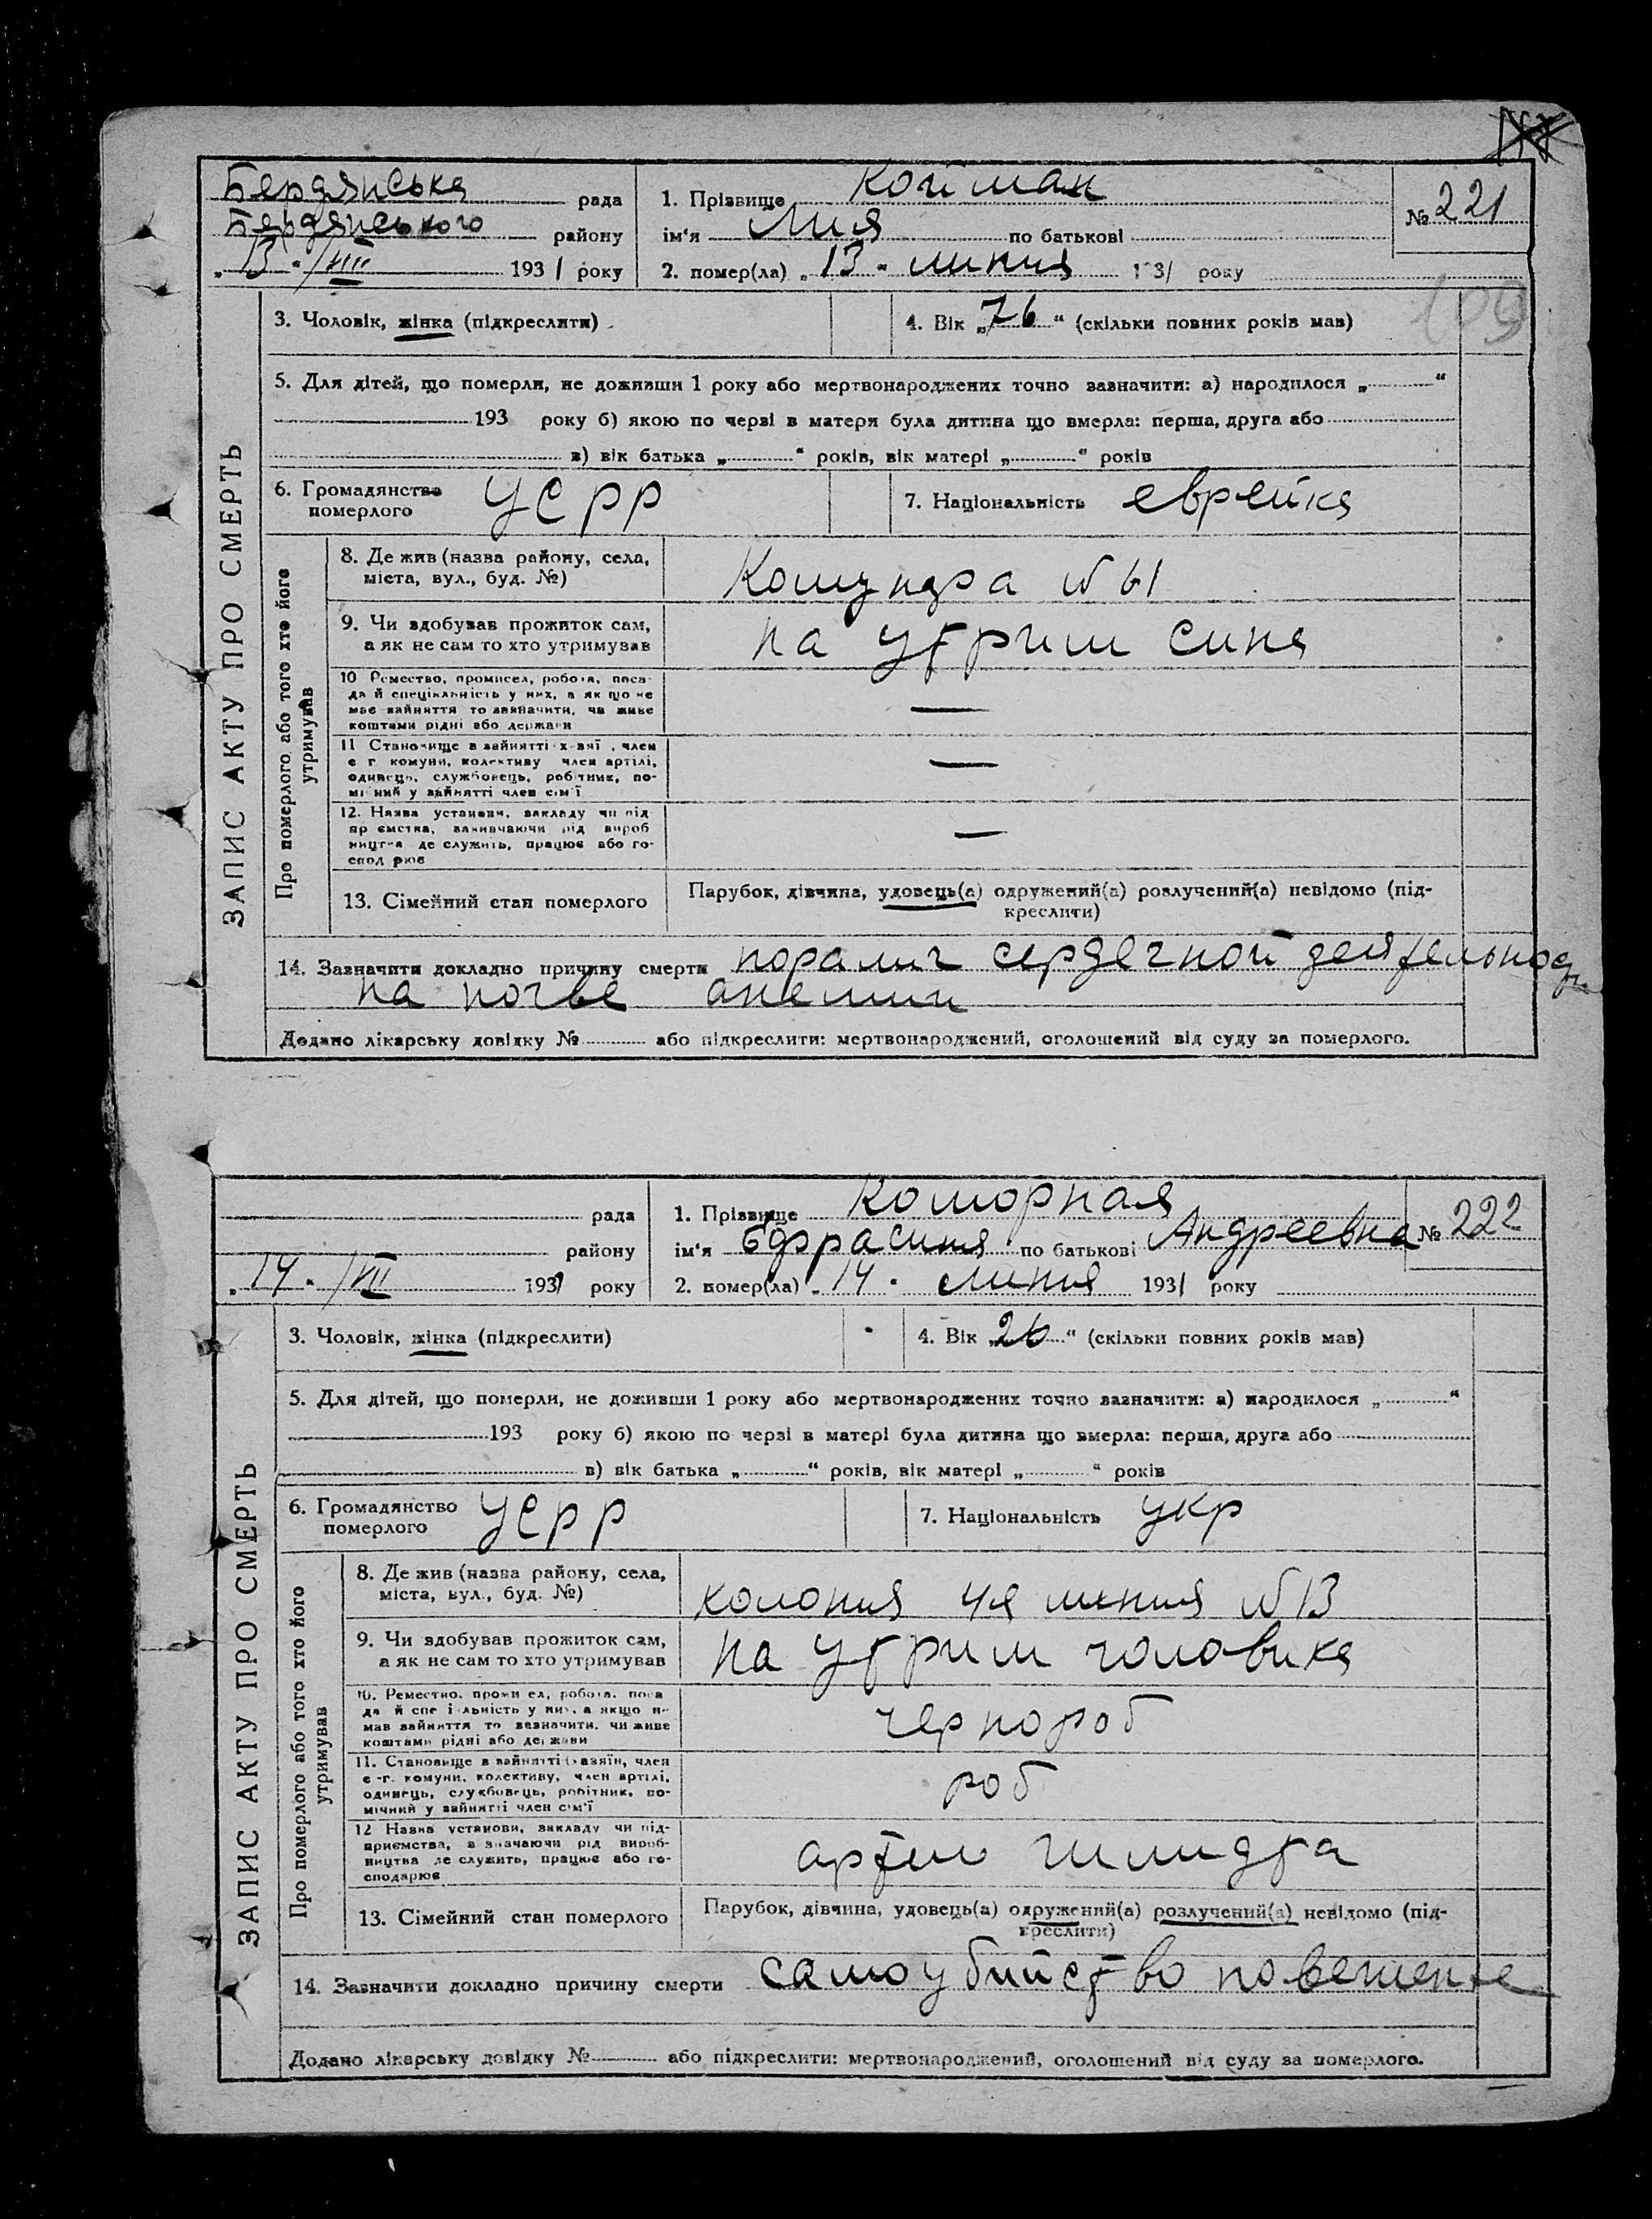 Бердянська рада
Бердянського району
„13" /VII 1931 року
1. Прізвище Койман
ім'я Лия по батькові
2. помер(ла) „13" липня 1931 року
№ 221
109
ЗАПИС АКТУ ПРО СМЕРТЬ
3. Чоловік, жінка (підкреслити)
4. Вік „76" (скільки повних років мав)
5. Для дітей, що померли, не доживши 1 року або мертвонароджених точно зазначити: а) народилося „ "
193 року б) якою по черзі в матери була дитина що вмерла: перша, друга або
в) вік батька „ " років, вік матері „ " років
6. Громадянство
померлого
УСРР
7. Національність еврейка
Про померлого або того хто його
утримував
8. Де жив (назва району, села,
міста, вул., буд. №)
Комундра № 61
9. Чи здобував прожиток сам,
а як не сам то хто утримував
на утрим сина
10 Ремество, промисел, робота, поса-
да й спеціяльність у них, а як що не
має зайняття то зазначити, чи живе
коштами рідні або держави
—
11 Становище в зайнятті хазяї , член
с г комуни, колективу член артілі,
одинець, службовець, робітник, по-
мічний у зайнятті член сім'ї
—
12. Назва установи, закладу чи під-
приємства, зазначаючи рід вироб
ництва де служить, працює або го-
сподарює
—
13. Сімейний стан померлого
Парубок, дівчина, удовець(а) одружений(а) розлучений(а) невідомо (під-
креслити)
14. Зазначити докладно причину смерти поралич сердечной деятельности
на почве анемии
Додано лікарську довідку № або підкреслити: мертвонароджений, оголошений від суду за померлого.
рада
району
„14" /VII 1931 року
1. Прізвище Коморная
ім'я Ефрасиния по батькові Андреевна
2. помер(ла) „14" липня 1931 року
№ 222
ЗАПИС АКТУ ПРО СМЕРТЬ
3. Чоловік, жінка (підкреслити)
4. Вік „26" (скільки повних років мав)
5. Для дітей, що померли, не доживши 1 року або мертвонароджених точно зазначити: а) народилося „ "
193 року б) якою по черзі в матері була дитина що вмерла: перша, друга або
в) вік батька „ " років, вік матері „ " років
6. Громадянство
померлого
УСРР
7. Національність укр
Про померлого або того хто його
утримував
8. Де жив (назва району, села,
міста, вул., буд. №)
колония 4я линия № 13
9. Чи здобував прожиток сам,
а як не сам то хто утримував
на утрим чоловика
10. Ремество, промисел, робота, поса
да й спеціяльність у них, а якщо не
мав зайняття то зазначити, чи живе
коштами рідні або держави
чернороб
11. Становище в зайнятті (хазяїн, член
с-г. комуни, колективу, член артілі,
одинець, службовець, робітник, по-
мічний у зайнятті член сім'ї
роб
12 Назва установи, закладу чи під-
приємства, зазначаючи рід вироб-
ництва де служить, працює або го-
сподарює
артил Шмидта
13. Сімейний стан померлого
Парубок, дівчина, удовець(а) одружений(а) розлучений(а) невідомо (під-
креслити)
14. Зазначити докладно причину смерти самоубийство повешение
Додано лікарську довідку № або підкреслити: мертвонароджений, оголошений від суду за померлого.